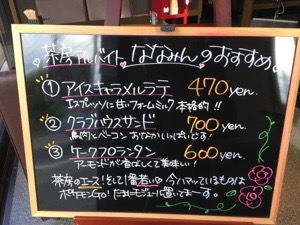 茶房アルバイト ななみんのおすすめ
① アイスキャラメルラテ 470yen.
エスプレッソに甘いフォームミルク 本格的!!
② クラブハウスサンド 700yen.
鶏肉とベーコン おなかいっぱいです!
③ ケークフロランタン 600yen.
アーモンドが香ばしくて美味しい!
茶房のエース!そして1番若い♡ 今ハマっているものは
ポケモンGO! たまにモジュール置いてまーす。